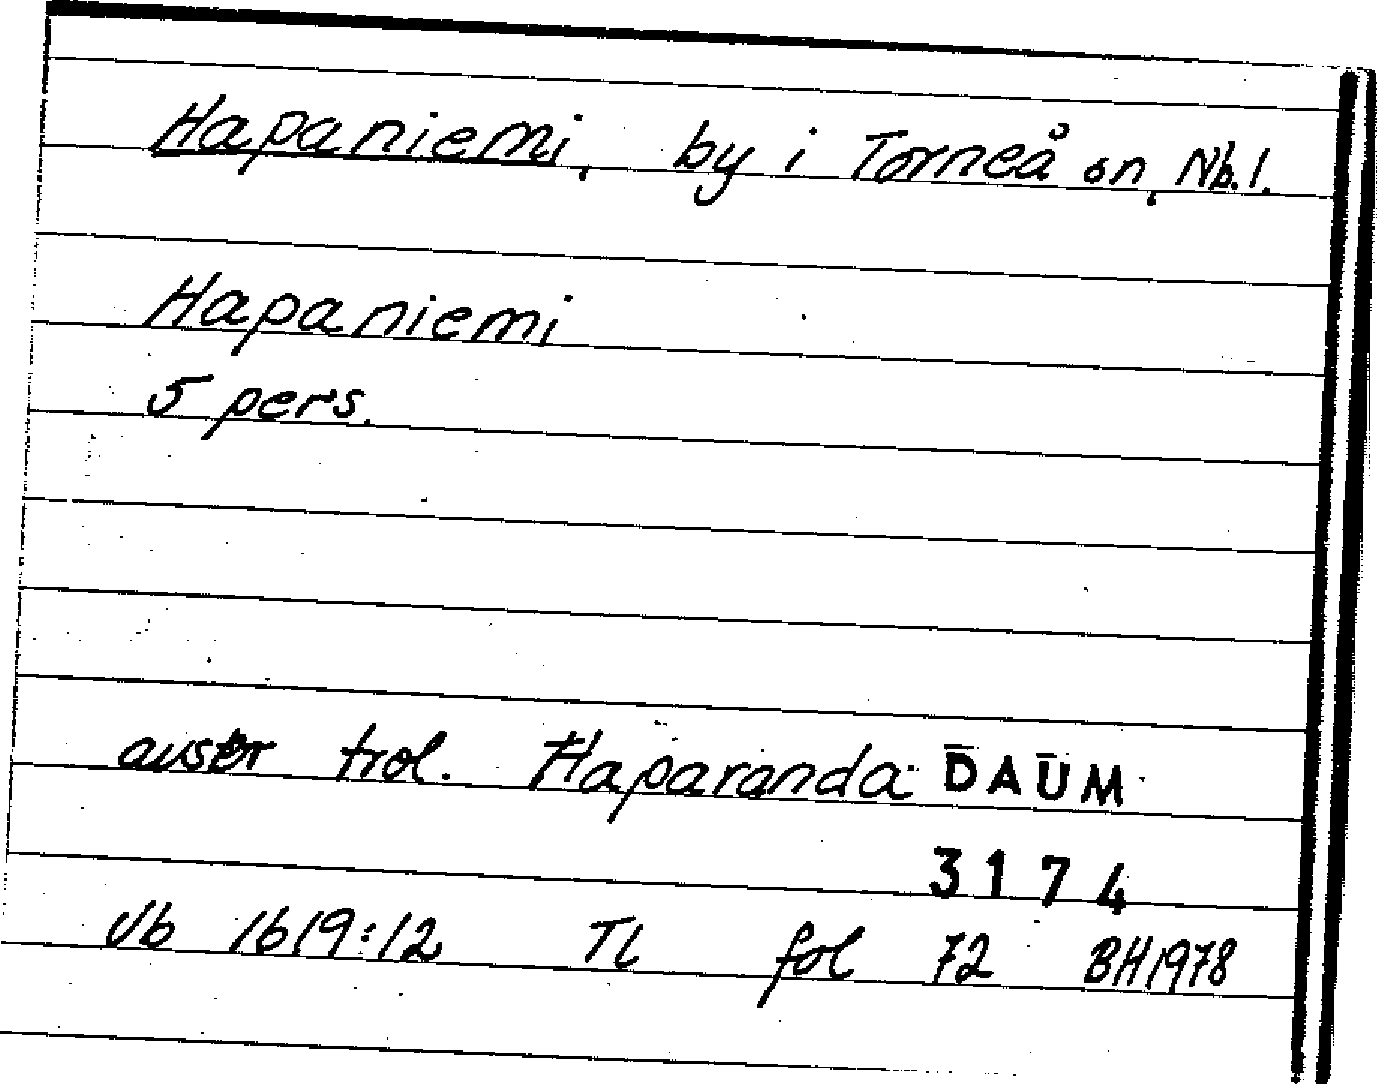 Hapaniemi, by i Torneå sn, Nb. l.
Hapaniemi
5 pers.
avskr trol. Haparanda DAUM
3174
Vb 1619:12 TL fol 72 BH 1978